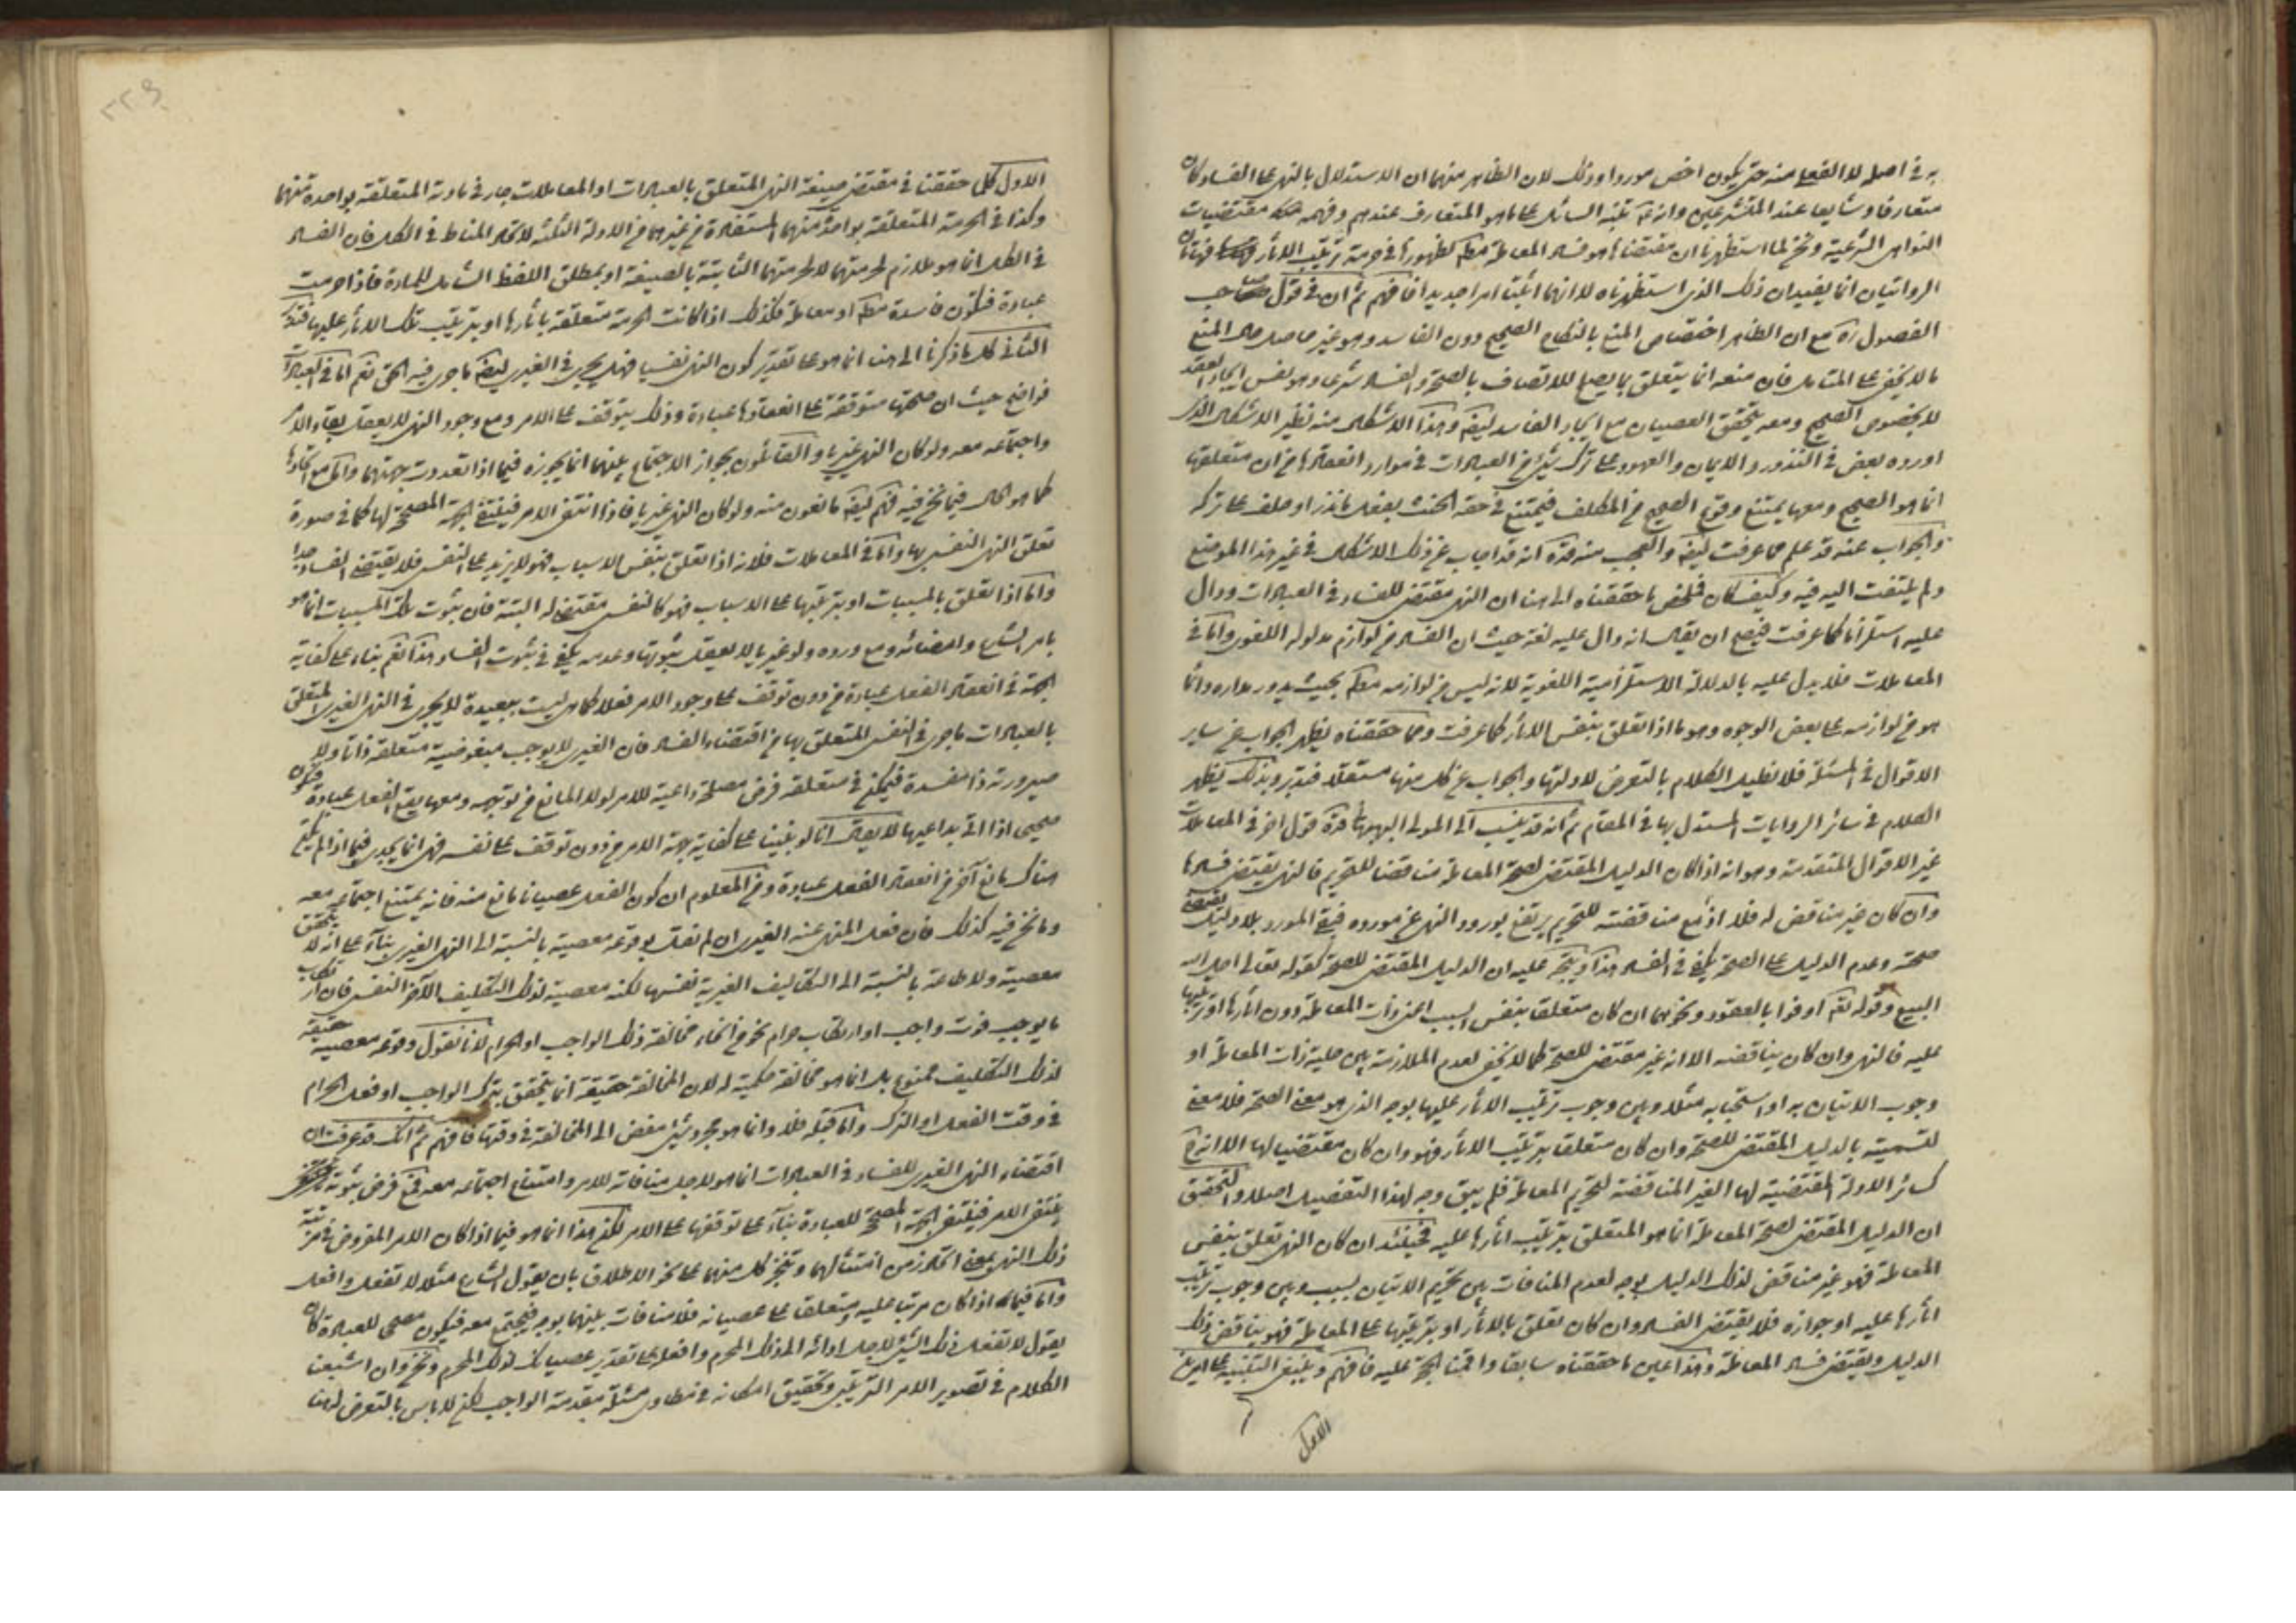 به في اصله لا الفعل منه حتى يكون اخص موردا وذلك لان الظاهر منهما ان الاستدلال بالنهي على الفساد كان
متعارفا وشايعا عند المتشرعين وانه تم نبّه السائل على ما هو المتعارف عندهم وفهمه مقتضيات
النواهي الشرعية ونحن لما استظهرنا ان مقتضاها هو فساد المعاملة مط لظهورها في حرمة ترتيب الاثار فهاتان
الروايتان انما يفيدان ذلك الذي استظهرناه لا انهما اثبتا امرا جديدا فافهم ثم ان في قول صاحب
الفصول ره مع ان الظاهر اختصاص المنع بالنكاح الصحيح دون الفاسد وهو غير حاصل حال المنع
ما لا يخفى على المتامل فان منعه انما يتعلق بما يصلح للاتصاف بالصحة والفساد شرعا وهو نفس ايجاد العقد
لا بخصوص الصحيح ومعه يتحقق العصيان مع ايجاد الفاسد ايضا وهذا الاشكال منه نظير الاشكال الذي
اورده بعض في النذور والايمان والعهود على ترك شيء من العبادات في موارد انعقادها من ان متعلقها
انما هو الصحيح ومعها يمتنع وقوع الصحيح من المكلف فيمتنع في حقه الحنث بفعل ما نذر او حلف على تركه
والجواب عنه قد علم مما عرفت ايضا والعجب منه قده انه قد اجاب عن ذلك الاشكال في غير هذا الموضع
ولم يلتفت اليه فيه وكيف كان فملخص ما حققناه الى هنا ان النهي مقتض للفساد في العبادات ودال
عليه استلزاما كما عرفت فيصح ان يقال انه دال عليه لغة حيث ان الفساد من لوازم مدلوله اللغوي واما في
المعاملات فلا يدل عليه بالدلالة الاستلزامية اللغوية لانه ليس من لوازمه مط بحيث يدور مداره وانما
هو من لوازمه على بعض الوجوه وهو ما اذا تعلق بنفس الاثار كما عرفت ومما حققناه يظهر الجواب عن ساير
الاقوال في المسئلة فلا نطيل الكلام بالتعرض لادلتها والجواب عن كل منها مستقلا فتدبر وبذلك يظهر
الكلام في سائر الروايات المستدل بها في المقام ثم انه قد ينسب الى المولى البهبهاني قده قول اخر في المعاملات
غير الاقوال المتقدمة وهو انه اذا كان الدليل المقتضي لصحة المعاملة مناقضا للتحريم فالنهي يقتضي فسادها
وان كان غير مناقض له فلا اذ مع مناقضته للتحريم يرتفع بورود النهي عن مورده فيبقى المورد بلا دليل يقتضي
صحته وعدم الدليل على الصحة يكفي في الفساد هذا ويتجه عليه ان الدليل المقتضي للصحة كقوله تعالى احل الله
البيع وقوله تع اوفوا بالعقود ونحوهما ان كان متعلقا بنفس السبب اعني ذات المعاملة دون اثارها او ترتيبها
عليه فالنهي وان كان يناقضه الا انه غير مقتض للصحة كما لا يخفى لعدم الملازمة بين حلية ذات المعاملة او
وجوب الاتيان به او استحبابه مثلا وبين وجوب ترتيب الاثار عليها بوجه الذي هو معنى الصحة فلا معنى
لتسميته بالدليل المقتضي للصحة وان كان متعلقا بترتيب الاثار فهو وان كان مقتضيا لها الا انه
كسائر الادلة المقتضية لها الغير المناقضة لتحريم المعاملة فلم يبق وجه لهذا التفصيل اصلا والتحقيق
ان الدليل المقتضي لصحة المعاملة انما هو المتعلق بترتيب اثارها عليه فحينئذ ان كان النهي تعلق بنفس
المعاملة فهو غير مناقض لذلك الدليل بوجه لعدم المنافات بين تحريم الاتيان بسبب وبين وجوب ترتيب
اثارها عليه او جوازه فلا يقتضي الفساد وان كان تعلق بالاثار او بترتيبها على المعاملة فهو يناقض ذلك
الدليل ويقتضي فساد المعاملة وهذا عين ما حققناه سابقا واقمنا الحجة عليه فافهم وينبغي التنبيه على امرين
الاول
الاول كل ما حققنا في مقتضى صيغة النهي المتعلق بالعبادات او المعاملات جار في مادته المتعلقة بواحدة منهما
وكذا في الحرمة المتعلقة بواحدة منهما المستفادة من غيرهما من الادلة الثلثة لاتحاد المناط في الكل فان الفساد
في الكل انما هو ملازم لحرمتهما لا لحرمتهما الثابتة بالصيغة او بمطلق اللفظ الشامل للمادة فاذا حرمت
عبادة فتكون فاسدة مط او معاملة فكذلك اذا كانت الحرمة متعلقة باثارها او بترتيب تلك الاثار عليها فتدبر
الثاني كل ما ذكرنا الى هنا انما هو على تقدير كون النهي نفسيا فهل يجري في الغيري ايضا ما جرى فيه الحق نعم اما في العبادات
فواضح حيث ان صحتها متوقفة على انعقادها عبادة وذلك يتوقف على الامر ومع وجود النهي لا يعقل بقاء الامر
واجتماعه معه ولو كان النهي غيريا والقائلون بجواز الاجتماع بينهما انما يجوزه فيما اذا تعددت جهتهما واما مع اتحادها
كما هو الحال فيما نحن فيه فهم ايضا مانعون منه ولو كان النهي غيريا فاذا انتفى الامر فينتفي الجهة المصححة لها كما في صورة
تعلق النهي النفسي بها واما في المعاملات فلانه اذا تعلق بنفس الاسباب فهو لا يزيد على النفسي فلا يقتضي الفساد جدا
واما اذا تعلق بالمسببات او بترتيبها على الاسباب فهو كالنفسي مقتض له البتة فان ثبوت تلك المسببات انما هو
بامر الشارع وامضائه ومع وروده ولو غيريا لا يعقل ثبوتها وعدمه يكفي في ثبوت الفساد هذا نعم بناء على كفاية
الجهة في انعقاد الفعل عبادة من دون توقف على وجود الامر فعلا كما هي ليست ببعيدة لا يجري في النهي الغيري المتعلق
بالعبادات ما جرى في النفسي المتعلق بها من اقتضاء الفساد فان الغيري لا يوجب مبغوضية متعلقه ذاتا ولا
صيرورته ذا مفسدة فيمكن في متعلقه فرض مصلحة داعية للامر لولا المانع من توجهه ومعها يقع الفعل عبادة فيكون
صحيحا اذا اتى بداعيها لا يقال انا لو بنينا على كفاية جهة الامر من دون توقف على نفسه فهي انما يجدي فيما اذا لم يكن
هناك مانع آخر من انعقاد الفعل عبادة ومن المعلوم ان كون الفعل عصيانا مانع منه فانه يمتنع اجتماعه معه
وما نحن فيه كذلك فان فعل المنهي عنه الغيري ان لم نقل بوقوعه معصية بالنسبة الى النهي الغيري بناء على انه لا يتحقق
معصية ولا طاعة بالنسبة الى التكاليف الغيرية نفسها لكنه معصية لذلك التكليف الآخر النفسي فان ارتكاب
ما يوجب فوت واجب او ارتكاب حرام نحو من انحاء مخالفة ذلك الواجب او الحرام لانا نقول وقوعه معصية حقيقة
لذلك التكليف ممنوع بل انما هو مخالفة حكمية له لان المخالفة حقيقة انما يتحقق بترك الواجب او فعل الحرام
في وقت الفعل او الترك واما قبله فلا وانما هو مجرد شيء مفض الى المخالفة في وقتها فافهم ثم انك قد عرفت ان
اقتضاء النهي الغيري للفساد في العبادات انما هو لاجل منافاته للامر وامتناع اجتماعه معه فمع فرض ثبوته
ينتفي الامر فينتفي الجهة المصححة للعبادة بناء على توقفها على الامر لكن هذا انما هو فيما اذا كان الامر المفروض في مرتبة
ذلك النهي بمعنى اتحاد زمن امتثالهما وتنجز كل منهما على نحو الاطلاق بان يقول الشارع مثلا لا تفعل وافعل
واما فيما اذا كان مرتبا عليه ومتعلقا على عصيانه فلا منافات بينهما بوجه فيجتمع معه فيكون مصححا للعبادة كان
يقول لا تفعل ذلك الشيء لاجل ادائه الى ذلك المحرم وافعل على تقدير عصيانك لذلك المحرم ونحن وان اشبعنا
الكلام في تصوير الامر الترتبي وتحقيق امكانه في مطاوي مسئلة مقدمة الواجب لكن لا باس بالتعرض لها هنا